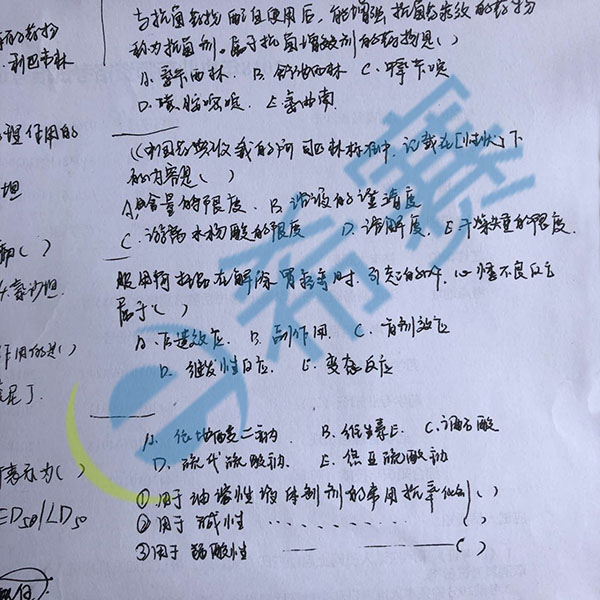 与抗菌药物配伍使用后,能增强抗菌药疗效的药物
称为抗菌剂。属于抗菌增效剂的药物是( )
A. 氨苄西林 B. 舒他西林 C. 甲氧
D. 磺胺嘧啶 E. 氨曲南
《中国药典》收载的阿司匹林标准中,记载在[性状]下
的内容是( )
A. 含量的限度 B. 溶液的澄清度
C. 游离水杨酸的限度 D. 溶解度 E. 干燥失重的限度
服用阿托品在解除胃痉挛时,引起的口干,心悸不良反应
属于( )
A. 后遗效应 B. 副作用 C. 首剂效应
D. 继发性反应 E. 变态反应
A. 依地酸二钠 B. 维生素E C. 酒石酸
D. 硫代硫酸钠 E. 焦亚硫酸钠
①用于油溶性液体制剂的常用抗氧化剂( )
②用于碱性 ( )
③用于弱酸性 ( )
的药物
利巴韦林
理作用的
坦
( )
沙坦
作用的是( )
尼丁
表示为( )
ED50/LD50
希赛